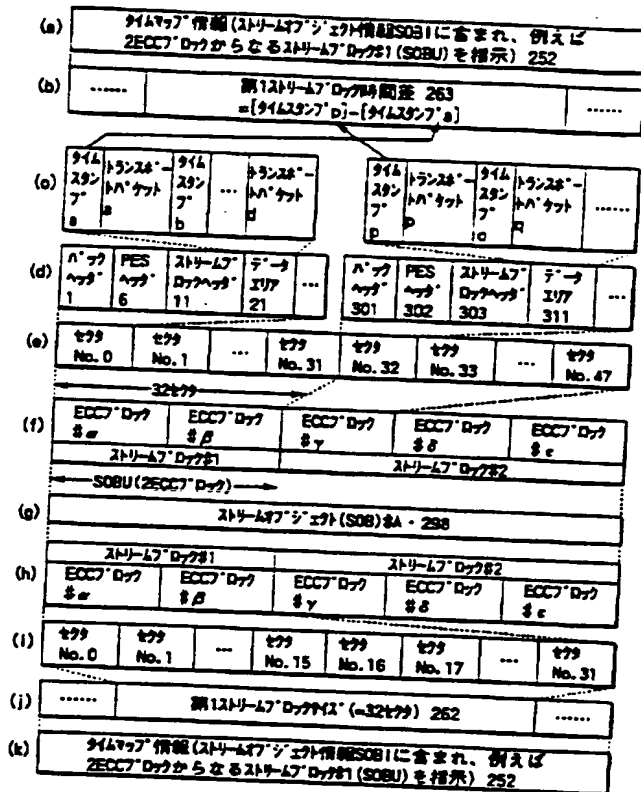 (a) タイムマップ情報(ストリームオブジェクト情報SOBIに含まれ、例えば
2ECCブロックからなるストリームブロック#1(SOBU)を指示) 252
(b) ...... 第1ストリームブロック時間差 263 ......
=[タイムスタンプp]-[タイムスタンプa]
(c) タイムスタンプa トランスポートパケットa タイムスタンプb ... トランスポートパケットd
タイムスタンプp トランスポートパケットp タイムスタンプq トランスポートパケットq ......
(d) パックヘッダ1 PESヘッダ6 ストリームブロックヘッダ11 データエリア21 ...
パックヘッダ301 PESヘッダ302 ストリームブロックヘッダ303 データエリア311 ...
(e) セクタNo.0 セクタNo.1 ... セクタNo.31 セクタNo.32 セクタNo.33 ... セクタNo.47
32セクタ
(f) ECCブロック#α ECCブロック#β ECCブロック#γ ECCブロック#δ ECCブロック#ε
ストリームブロック#1 ストリームブロック#2
SOBU(2ECCブロック)
(g) ストリームオブジェクト(SOB)#A・298
ストリームブロック#1 ストリームブロック#2
(h) ECCブロック#α ECCブロック#β ECCブロック#γ ECCブロック#δ ECCブロック#ε
(i) セクタNo.0 セクタNo.1 ... セクタNo.15 セクタNo.16 セクタNo.17 ... セクタNo.31
(j) ...... 第1ストリームブロックサイズ(=32セクタ) 262 ......
(k) タイムマップ情報(ストリームオブジェクト情報SOBIに含まれ、例えば
2ECCブロックからなるストリームブロック#1(SOBU)を指示) 252